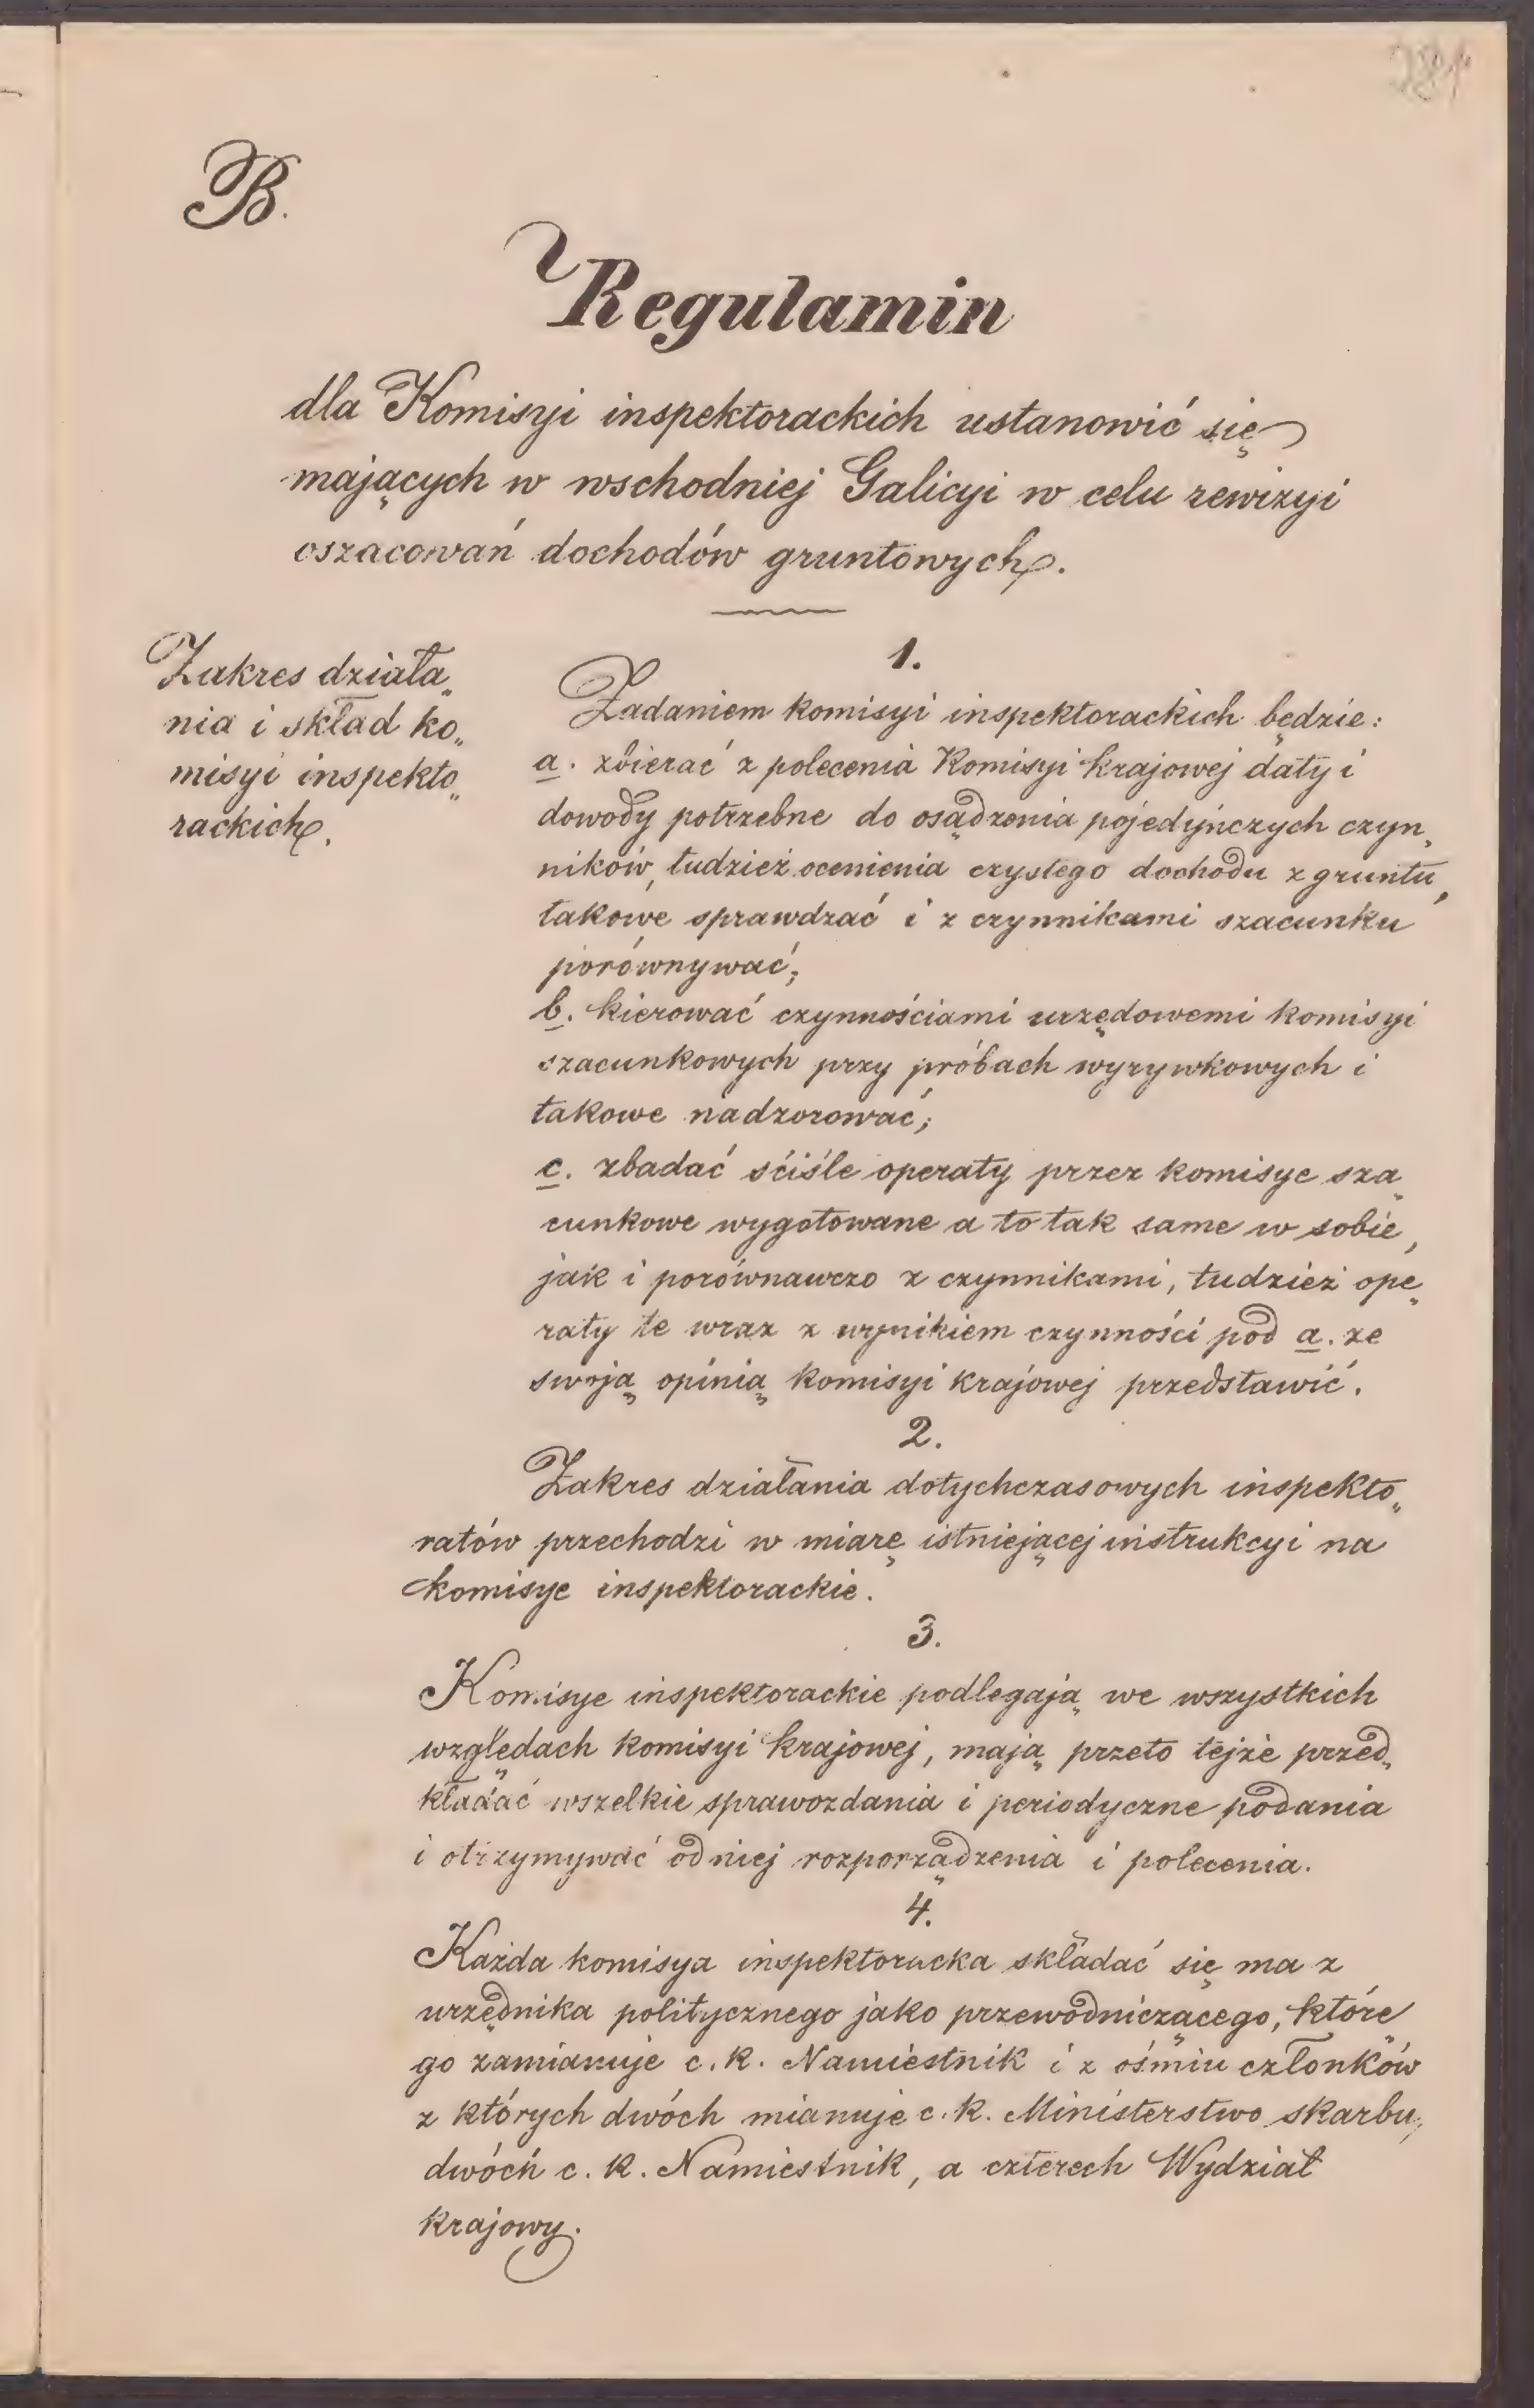 281
B.
Regulamin
dla Komisyi inspektorackich ustanowić się
mających w wschodniej Galicyi w celu rewizyi
oszacowań dochodów gruntowych.
Zakres działa„
nia i skład ko„
misyi inspekto„
rackich.
1.
Zadaniem komisyi inspektorackich będzie:
a. zbierać z polecenia Komisyi krajowej daty i
dowody potrzebne do osądzenia pojedyńczych czyn„
ników, tudzież ocenienia czystego dochodu z gruntu,
takowe sprawdzać i z czynnikami szacunku
porównywać;
b. kierować czynnościami urzędowemi komisyi
szacunkowych przy próbach wyrywkowych i
takowe nadzorować;
c. zbadać sćiśle operaty przez komisye sza„
cunkowe wygotowane a to tak same w sobie,
jak i porównawczo z czynnikami, tudzież ope„
raty te wraz z wynikiem czynności pod a. ze
swoją opinią komisyi krajowej przedstawić.
2.
Zakres działania dotychczasowych inspekto„
ratów przechodzi w miarę istniejącej instrukcyi na
komisye inspektorackie.
3.
Komisye inspektorackie podlegają we wszystkich
względach komisyi krajowej, mają przeto tejże przed„
kładać wszelkie sprawozdania i periodyczne podania
i otrzymywać od niej rozporządzenia i polecenia.
4.
Każda komisya inspektoracka składać się ma z
urzędnika politycznego jako przewodniczącego, które„
go zamianuje c. k. Namiestnik i z ośmiu członków
z których dwóch mianuje c. k. Ministerstwo skarbu,
dwóch c. k. Namiestnik, a czterech Wydział
krajowy.